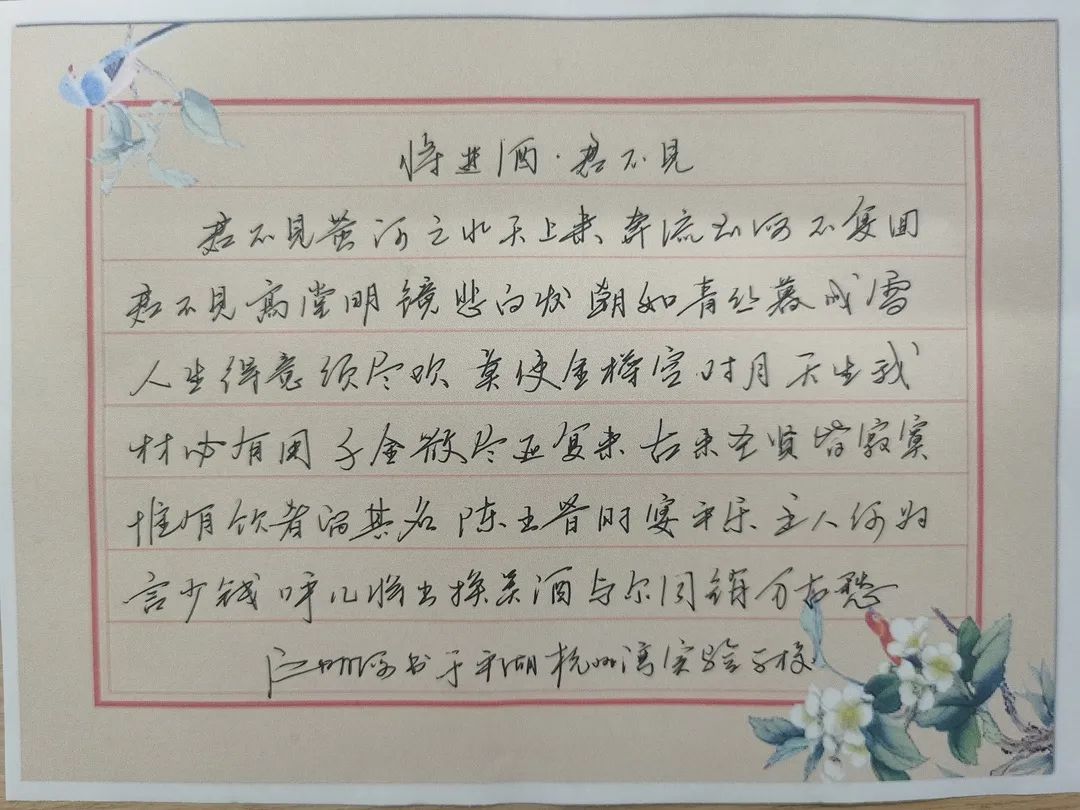 将进酒·君不见
君不见黄河之水天上来奔流到河不复回
君不见高堂明镜悲白发朝如青丝暮成雪
人生得意须尽欢莫使金樽空对月天生我
材必有用千金散尽还复来古来圣贤皆寂寞
惟有饮者留其名陈王昔时宴平乐主人何为
言少钱呼儿将出换美酒与尔同销万古愁
书于平湖杭州湾实验学校